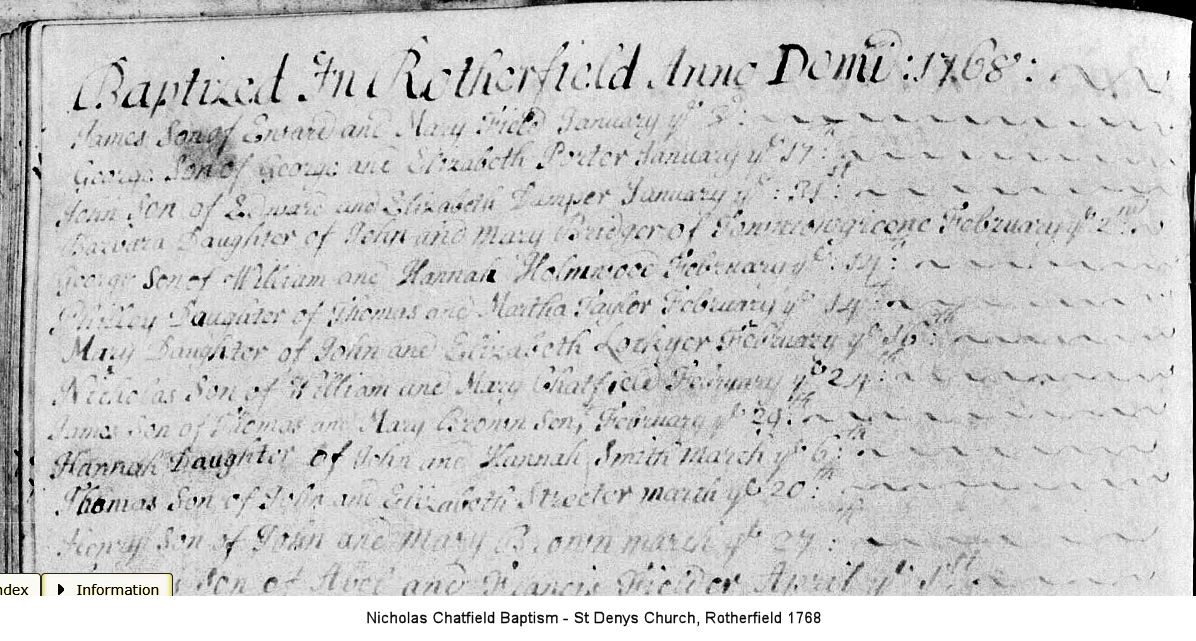 Baptized In Rotherfield Anno Domi: 1768:
James Son of Edward and Mary Field January ye 3d:
George Son of George and Elizabeth Porter January ye 17th:
John Son of Edward and Elizabeth Damper January ye: 31st:
Barbara Daughter of John and Mary Bridger of February ye 2nd:
George Son of William and Hannah Holmwood February ye: 14th:
Philley Daughter of Thomas and Martha Taylor February ye 14th:
Mary Daughter of John and Elizabeth February ye 16th:
Nicholas Son of William and Mary Chatfield February ye 24th:
James Son of Thomas and Mary Brown Senr February ye 29th:
Hannah Daughter of John and Hannah Smith March ye 6th:
Thomas Son of John and Elizabeth Streeter march ye 20th:
Henry Son of John and Mary Brown march ye 27th:
Son of Abel and Francis April ye 1st
ndex
Information
Nicholas Chatfield Baptism - St Denys Church, Rotherfield 1768